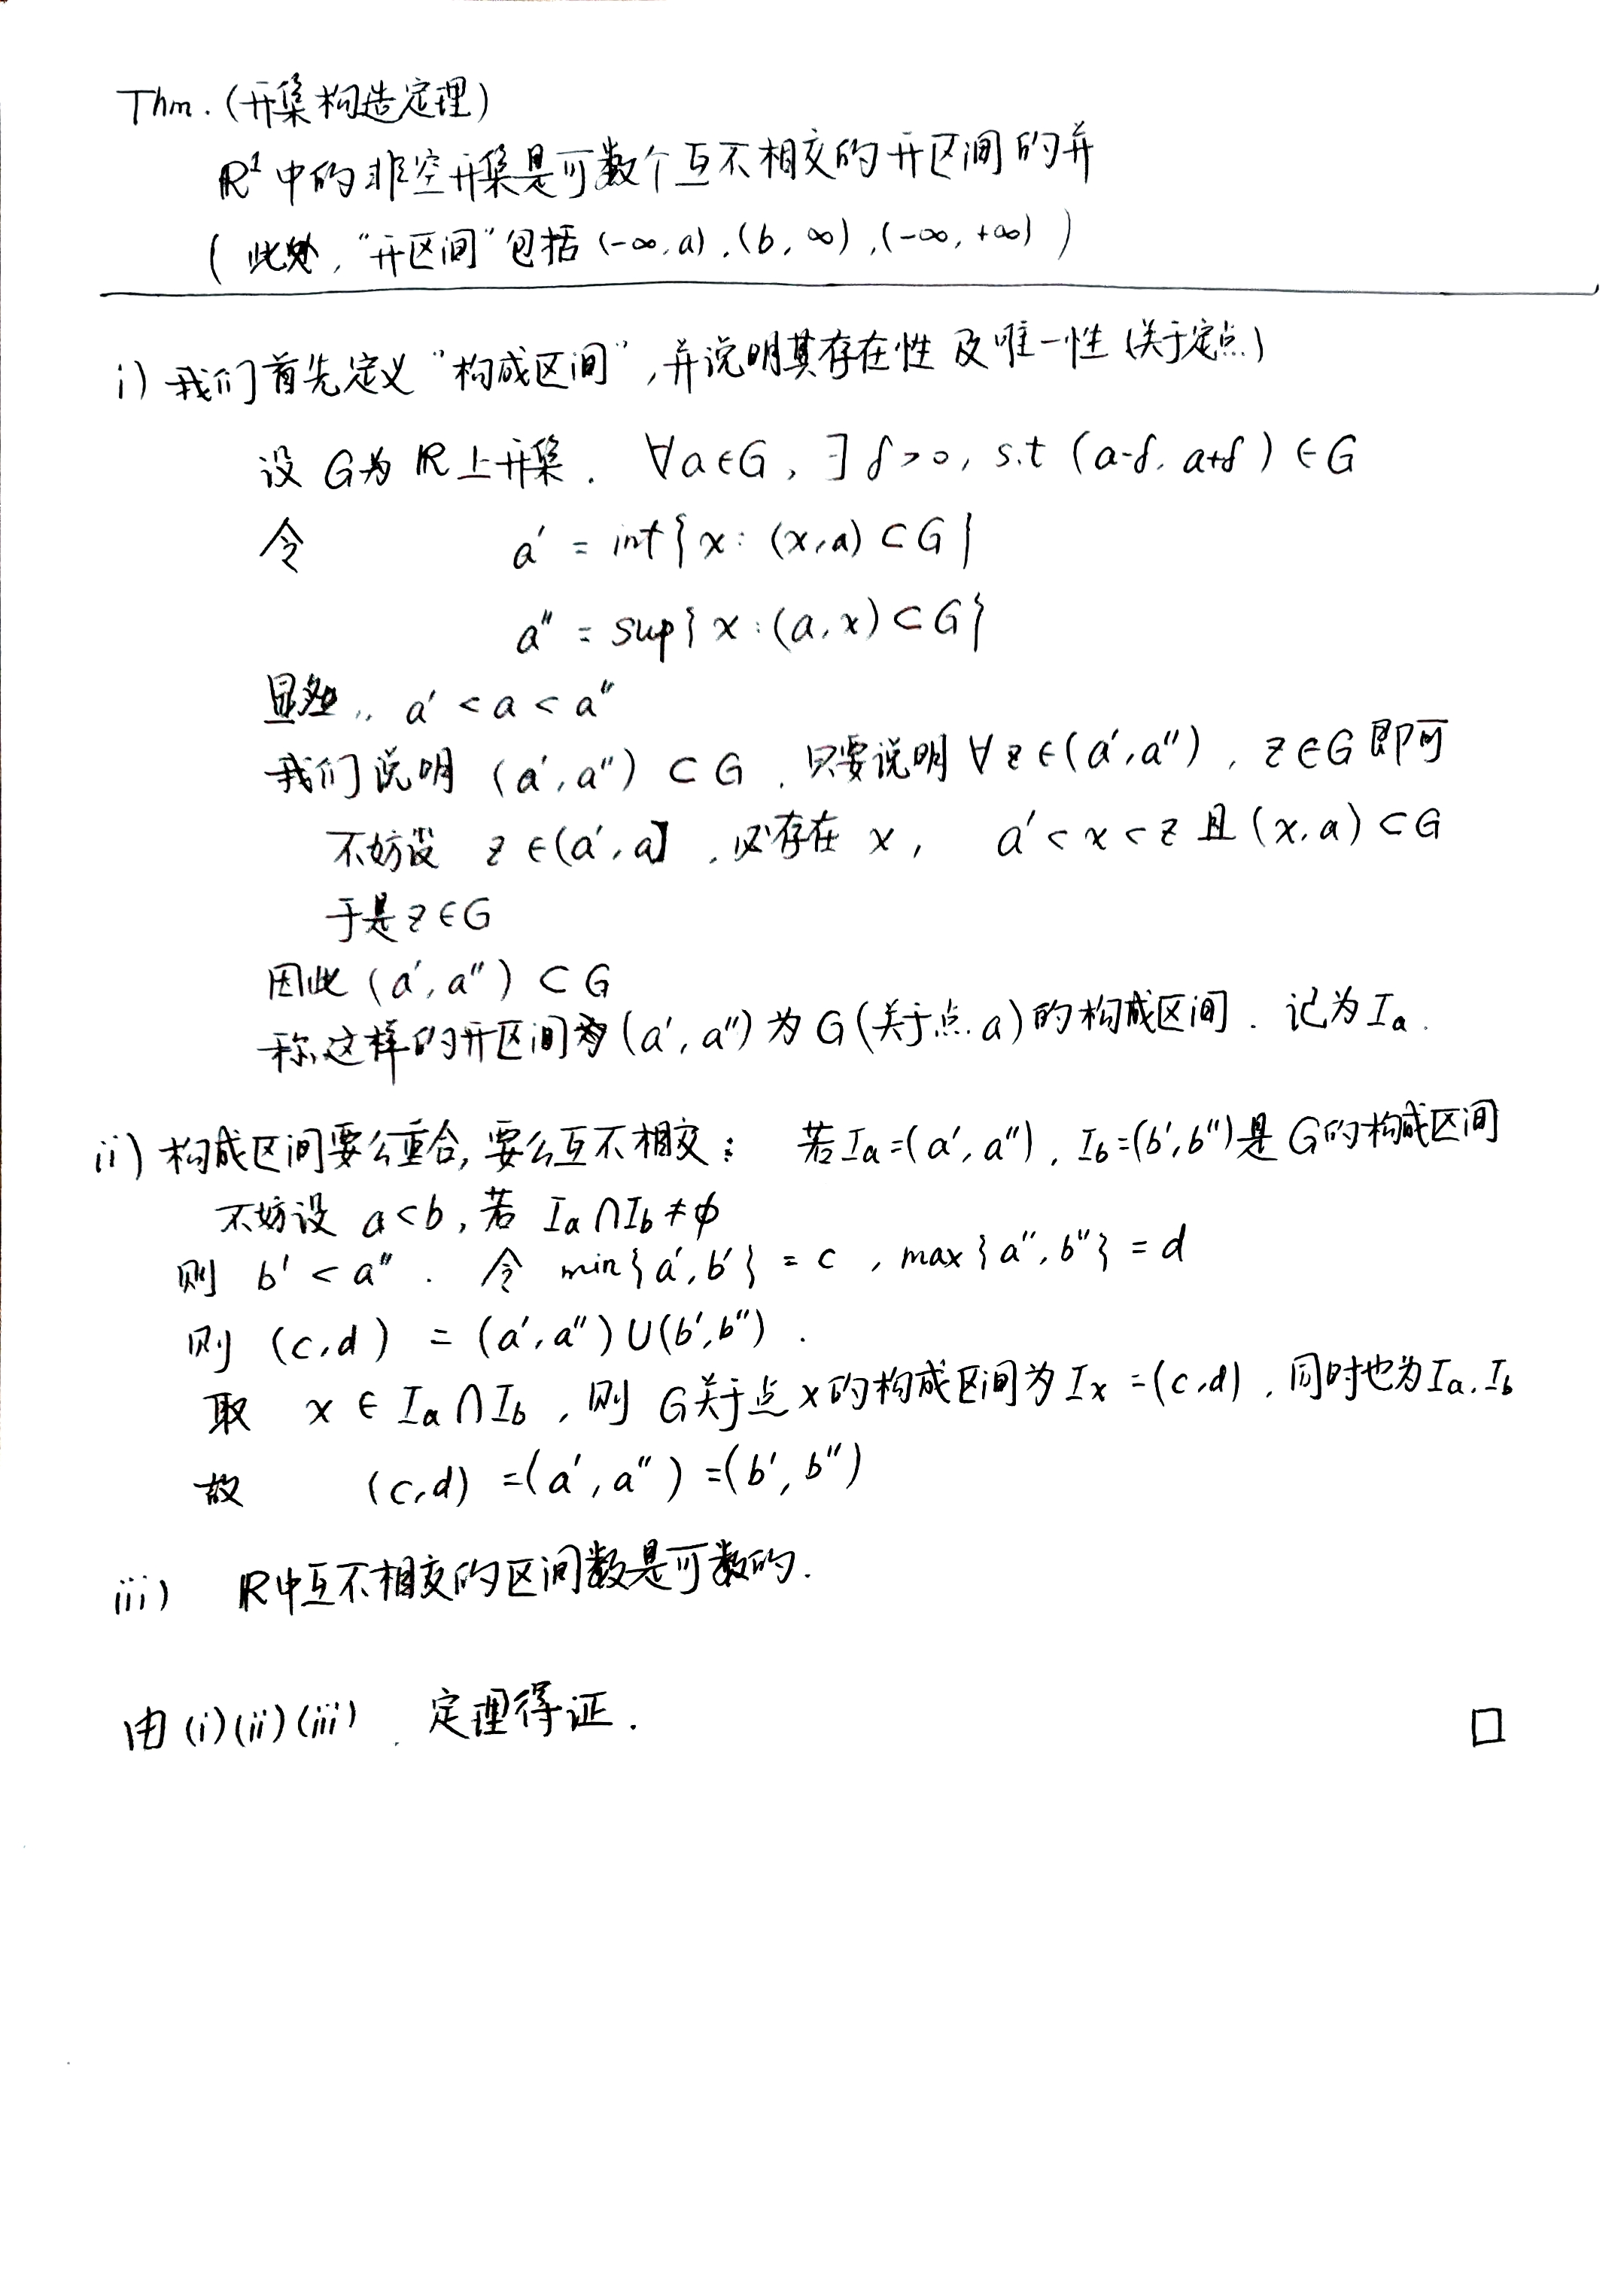 Thm.(开集构造定理)
R¹中的非空开集是可数个互不相交的开区间的并
(此处,"开区间"包括(-∞,a),(b,∞),(-∞,+∞))
i)我们首先定义"构成区间",并说明其存在性及唯一性(关于定点)
设G为R上开集. ∀a∈G,∃δ>0,s.t (a-δ,a+δ)∈G
令 a' = inf{x:(x,a)⊂G}
a" = sup{x:(a,x)⊂G}
显然,, a'<a<a"
我们说明 (a',a")⊂G,只要说明∀z∈(a',a"),z∈G即可
不妨设 z∈(a',a],必存在x, a'<x<z且(x,a)⊂G
于是z∈G
因此(a',a")⊂G
称这样的开区间为(a',a")为G(关于点a)的构成区间.记为Ia.
ii)构成区间要么重合,要么互不相交: 若Ia=(a',a"),Ib=(b',b")是G的构成区间
不妨设 a<b,若 Ia∩Ib≠φ
则 b'<a". 令 min{a',b'}=c,max{a",b"}=d
则 (c,d) = (a',a")∪(b',b").
取 x∈Ia∩Ib,则 G关于点x的构成区间为Ix=(c,d),同时也为Ia,Ib
故 (c,d)=(a',a")=(b',b")
iii) R中互不相交的区间数是可数的.
由(i)(ii)(iii),定理得证. □